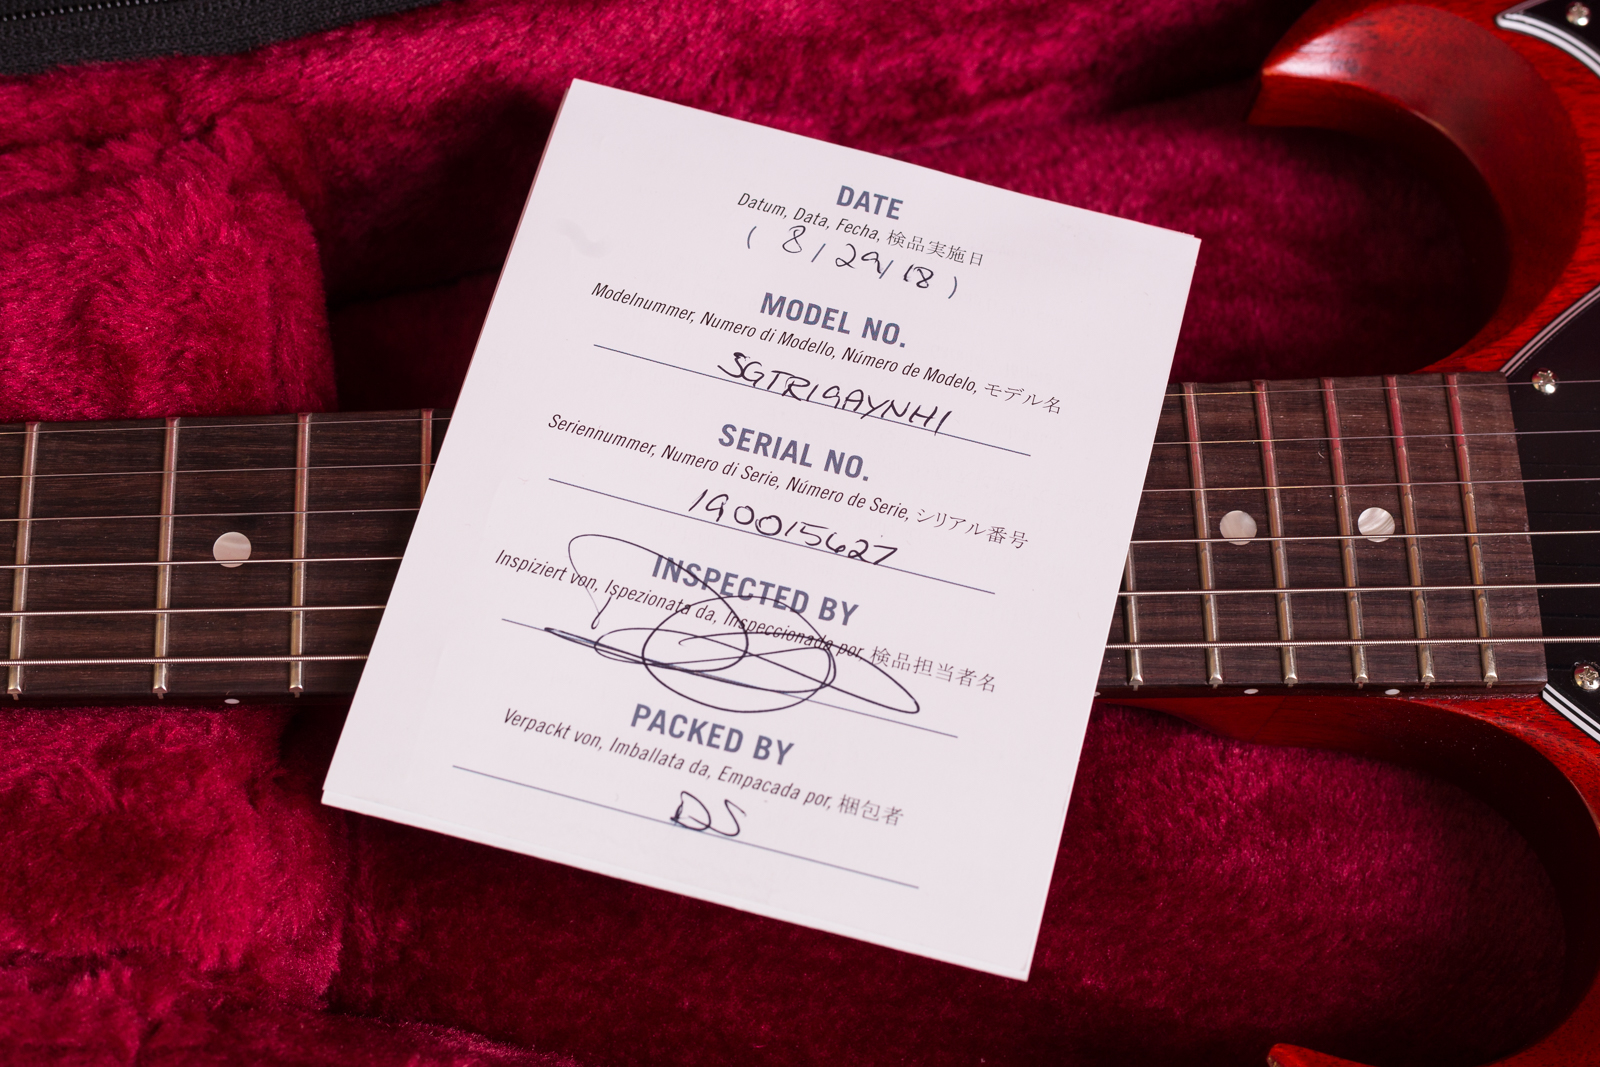 DATE
Datum, Data, Fecha, 検品実施日
( 8/29/18 )
MODEL NO.
Modelnummer, Numero di Modello, Número de Modelo, モデル名
SGTR19AYNH1
SERIAL NO.
Seriennummer, Numero di Serie, Número de Serie, シリアル番号
190015627
INSPECTED BY
Inspiziert von, Ispezionata da, Inspeccionada por, 検品担当者名
PACKED BY
Verpackt von, Imballata da, Empacada por, 梱包者
DS